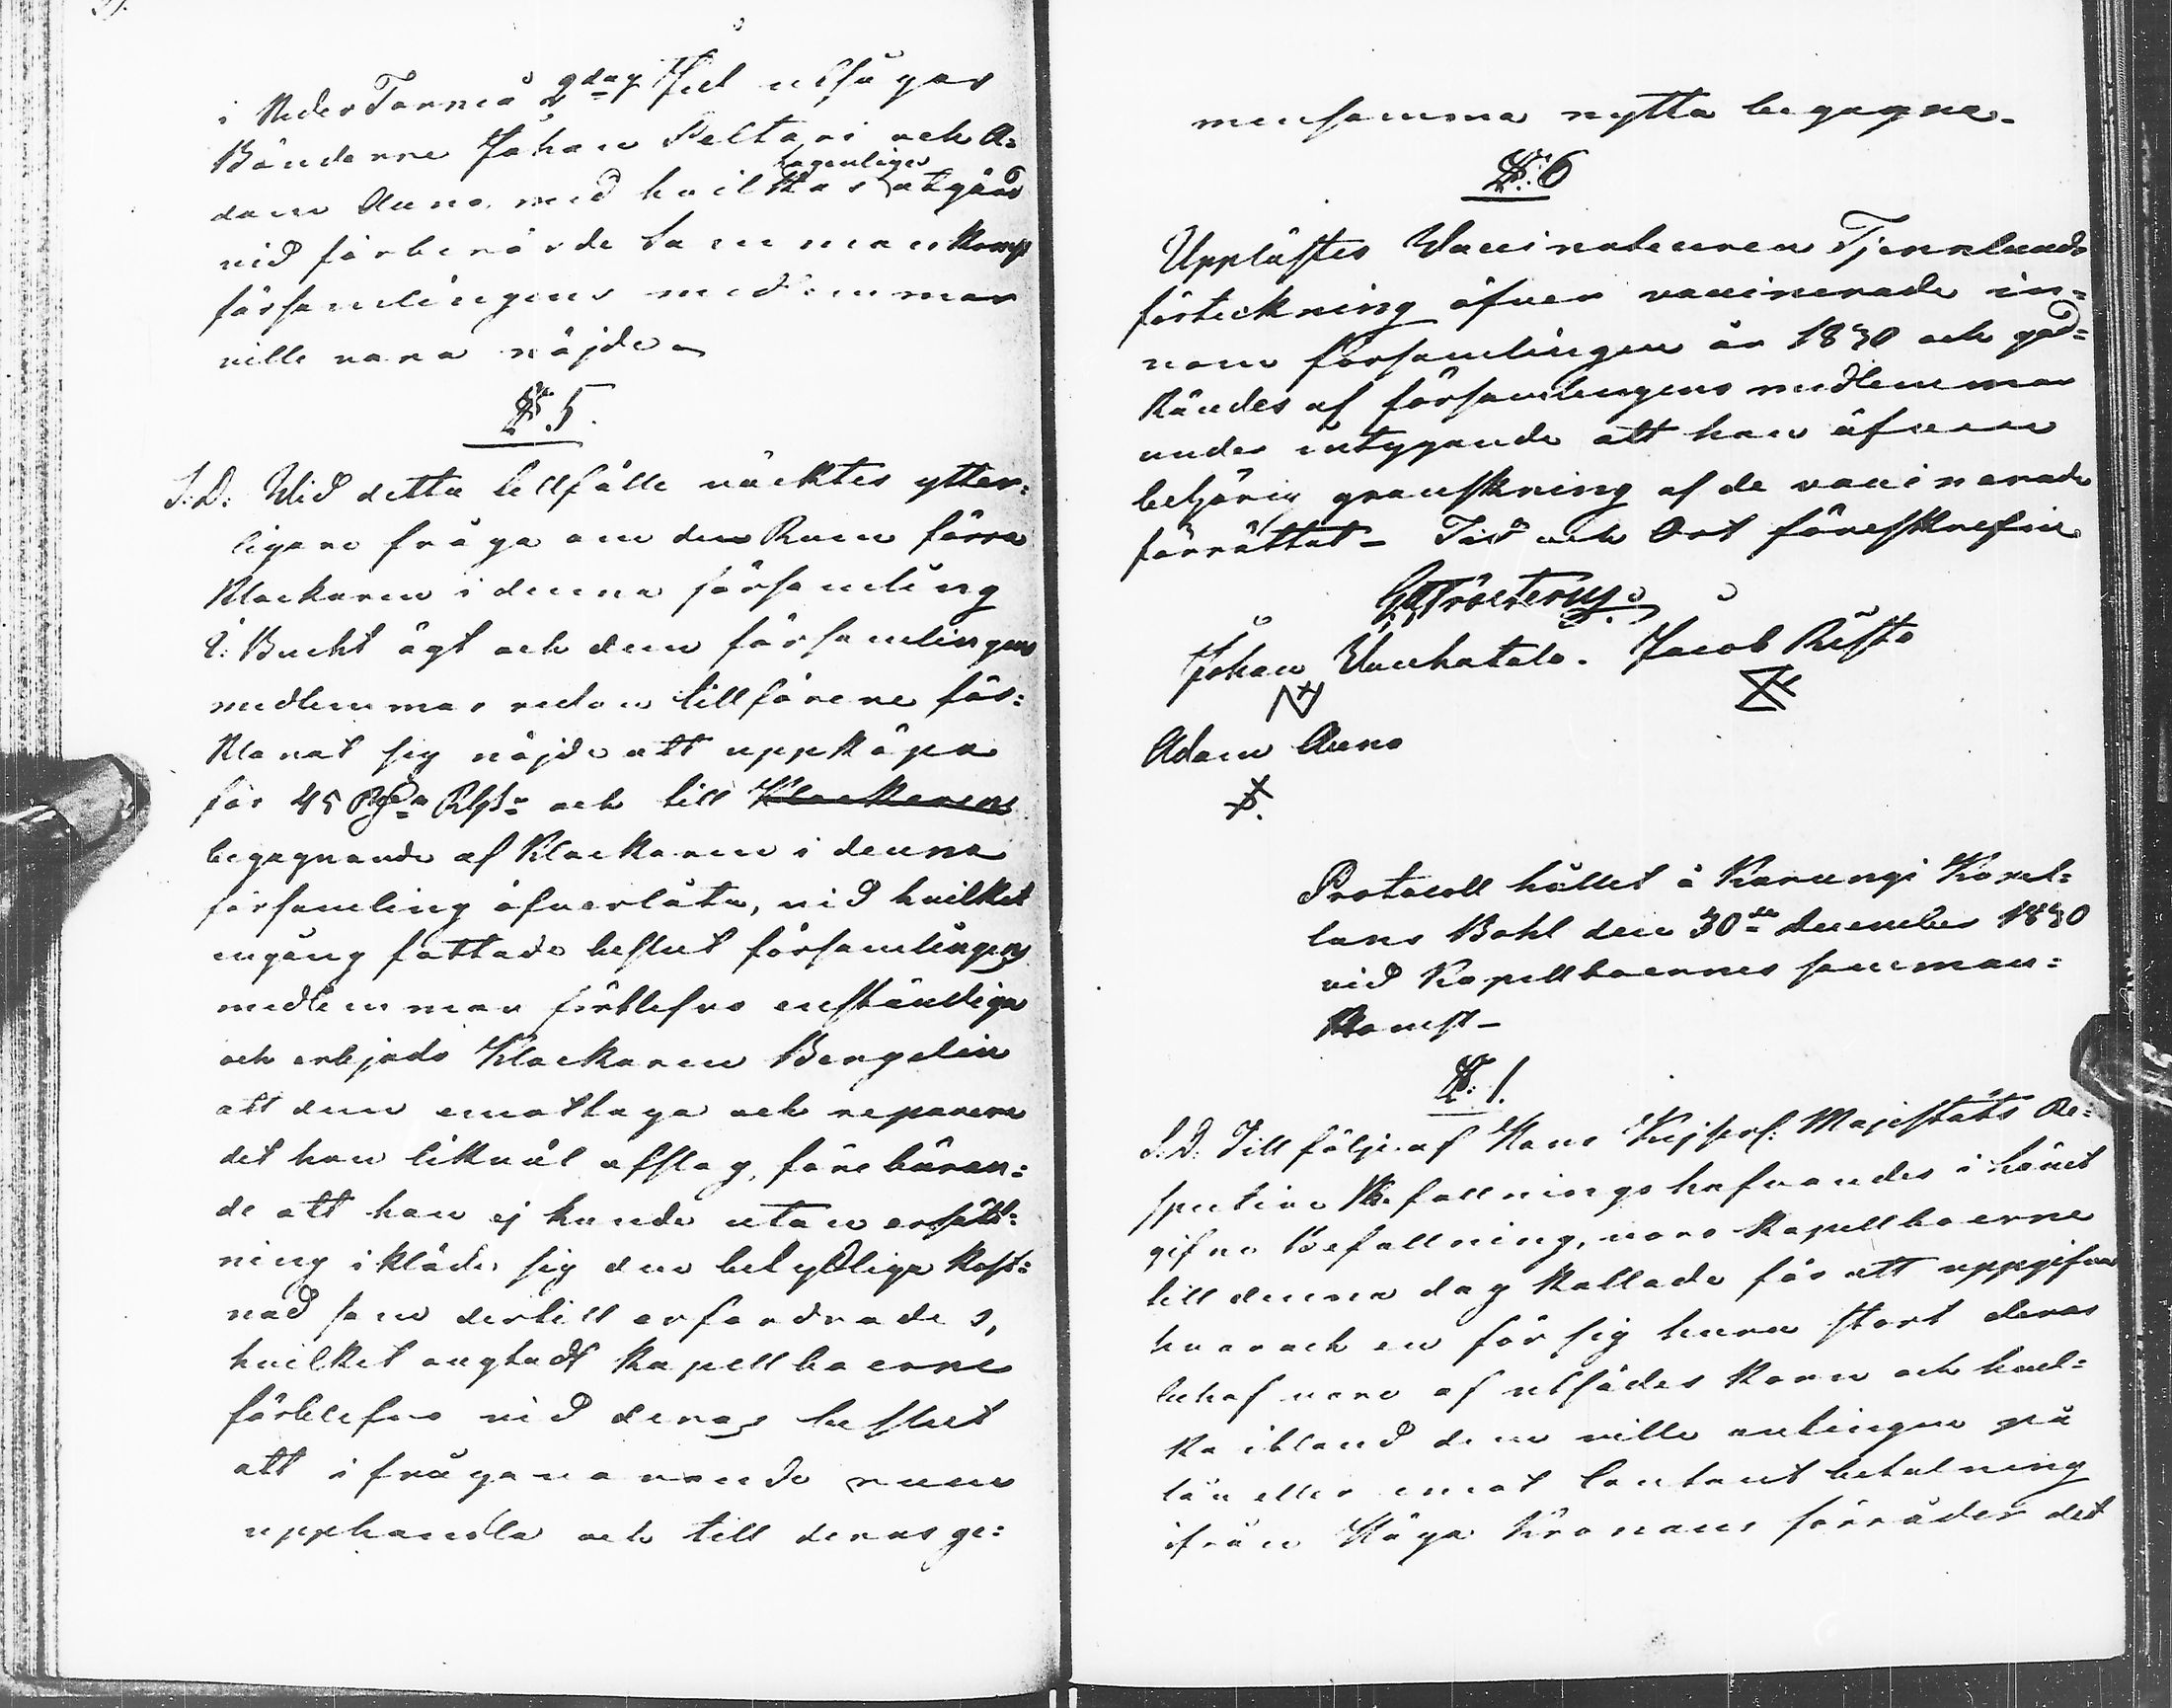 i Neder Torneå 2dag Jul utsågos
Bönderne Johan Peltari och A-
dam Auno med hvilkas lagenliga åtgärd
vid förberörde Sammankomst
församlingens medlemmar
ville vara nöjde
§ 5.
S. D. Vid detta tillfälle väcktes ytter-
ligare fråga om den Ruin förra
Klockaren i denna församling
Bucht ägt och dem församlingens
medlemmar redan tillförene för-
klarat sig nöjde att uppköpa
för 45 och till Klockarens
begagnande af Klockaren i denna
församling öfverlåta, vid hvilket
engång fattade beslut församlingens
medlemmar förblefvo enständiga
och erbjödo Klockaren Bergelin
att dem emottaga och reparera
det han likväl afslog, förebäran-
de att han ej kunde utan ersätt-
ning ikläda sig den betydliga kost-
nad som dertill erfordrades,
hvilket ongtadt Kapellboerne
förblefvo vid deras beslut
att ifrågavarande
upphandla och till deras ge-
mensamma nytta begagna.
§ 6
Upplästes Vaccinateuren Tjernlunds
förteckning öfver vaccinerade in-
nom församlingen år 1830 och god-
kändes af församlingens medlemmar
under intygande att han äfven
behörig granskning af de vaccinerade
förrättat - Tid och Ort föreskrefne
Johan Vanhatalo. Jacob Risto
Adam Auno
Protocoll hållet å Karungi Kapel-
lans Bohl den 30de december 1830
vid Kapellboernes samman-
komst -
§. 1.
S. D. Till följe af Hans Kejserl: Majestäts Re-
spective Befallningshafvandes i länet
gifne Befallning, voro Kapellboerne
till denna dag kallade för att uppgifva
hvar och en för sig huru stort deras
behof vore af utsädes Korn och hvil-
ka ibland dem ville antingen på
lån eller emot Contant betalning
ifrån Höga Kronans förråder det